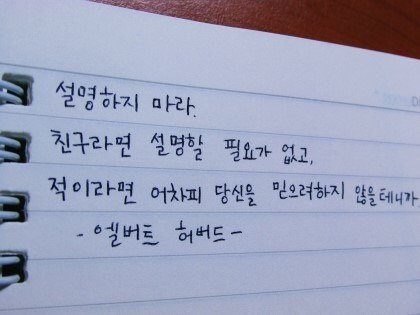 설명하지 마라.
친구라면 설명할 필요가 없고,
적이라면 어차피 당신을 믿으려하지 않을테니까
- 엘버트 허버드 -